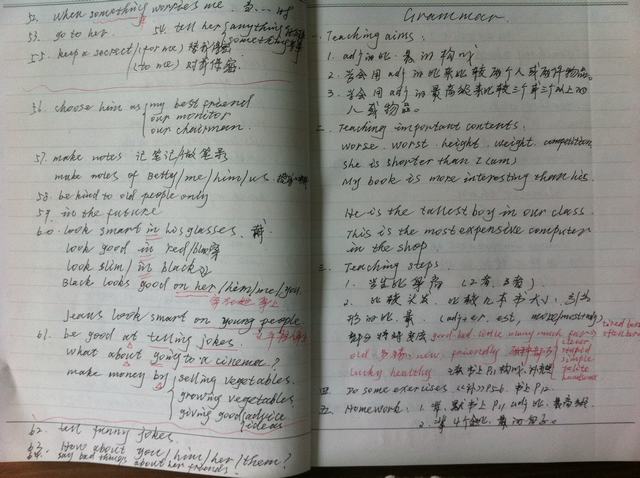 52. when something worries me
53. go to her. 54. tell her anything
something
55. keep a secret (for me) 替我保密
(to me) 对我保密
56. choose him as my best friend
our monitor
our chairman
57. make notes 记笔记/做笔录
make notes of Betty/me/him/us
58. be kind to old people only
59. in the future
60. look smart in his glasses.
look good in red/blue
look slim in black
Black looks good on her/him/me/you.
Jeans look smart on young people
61. be good at telling jokes.
what about going to a cinema?
make money by selling vegetables.
growing vegetables.
giving good advice
ideas
62. tell funny jokes.
63. How about you/him/her/them?
64. say bad things about her friends
Grammar
一. Teaching aims:
1. adj 的比.最的构成
2. 学会用 adj 的比来比较两个人或两件物品。
3. 学会用 adj 的最高级来比较三个或三个以上的
人或物品。
二. Teaching important contents.
worse. worst. height. weight. competition
She is shorter than I (am)
My book is more interesting than his.
He is the tallest boy in our class.
This is the most expensive computer
in the shop
三. Teaching steps.
1. 学生比举高 (2者, 3者)
2. 比较头发. 比较几本书大小,
形的比.最. (adj+er, est, more/most+adj)
good bad little many much far
tired
clever
stupid
simple
polite
handsome
lucky healthy
四 Do some exercises P56. 书上 P12.
五 Homework: 1.
2.